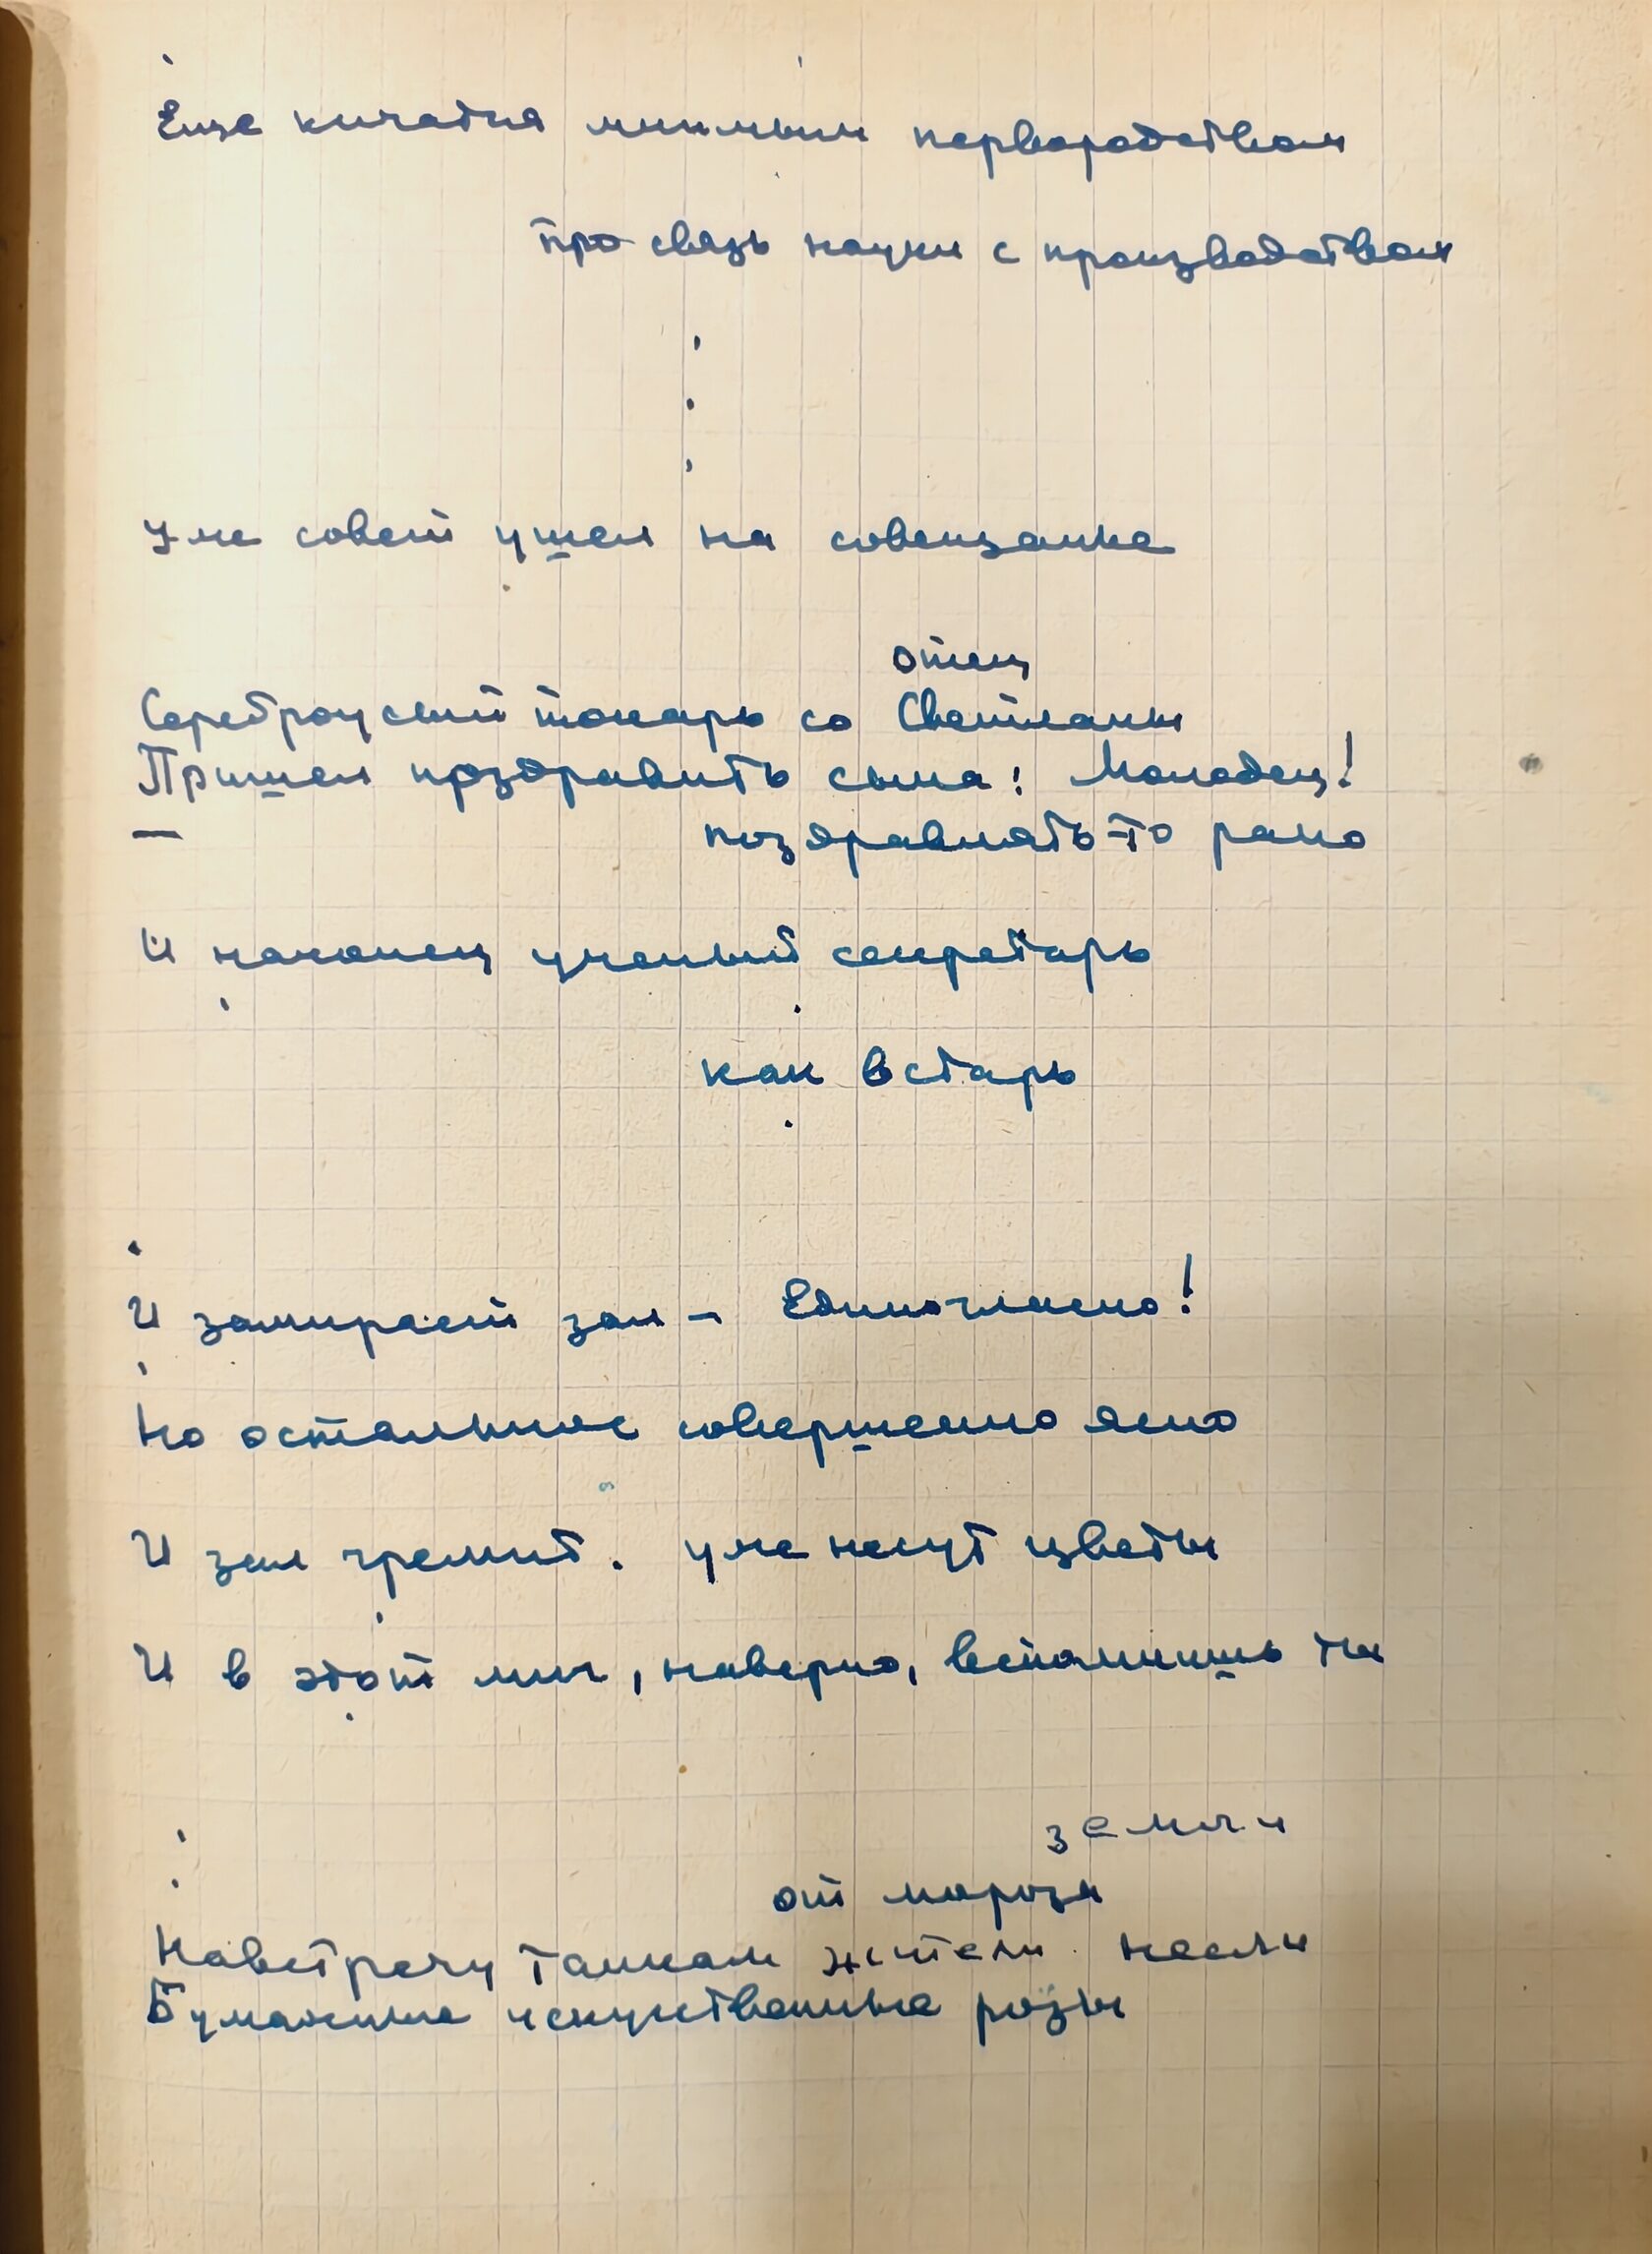 Еще кичатся мнимым первородством
про связь науки с производством
Уже совет ушел на совещание
отец
Сереброусый токарь со Светланы
Пришел поздравить сына: Молодец!
поздравлять-то рано
И наконец ученый секретарь
как встарь
И замирает зал – Единогласно!
Но остальное совершенно ясно
И зал гремит. уже несут цветы
И в этот миг, наверно, вспомнишь ты
земли
от мороза
Навстречу танкам жители несли
Бумажные искуственные розы